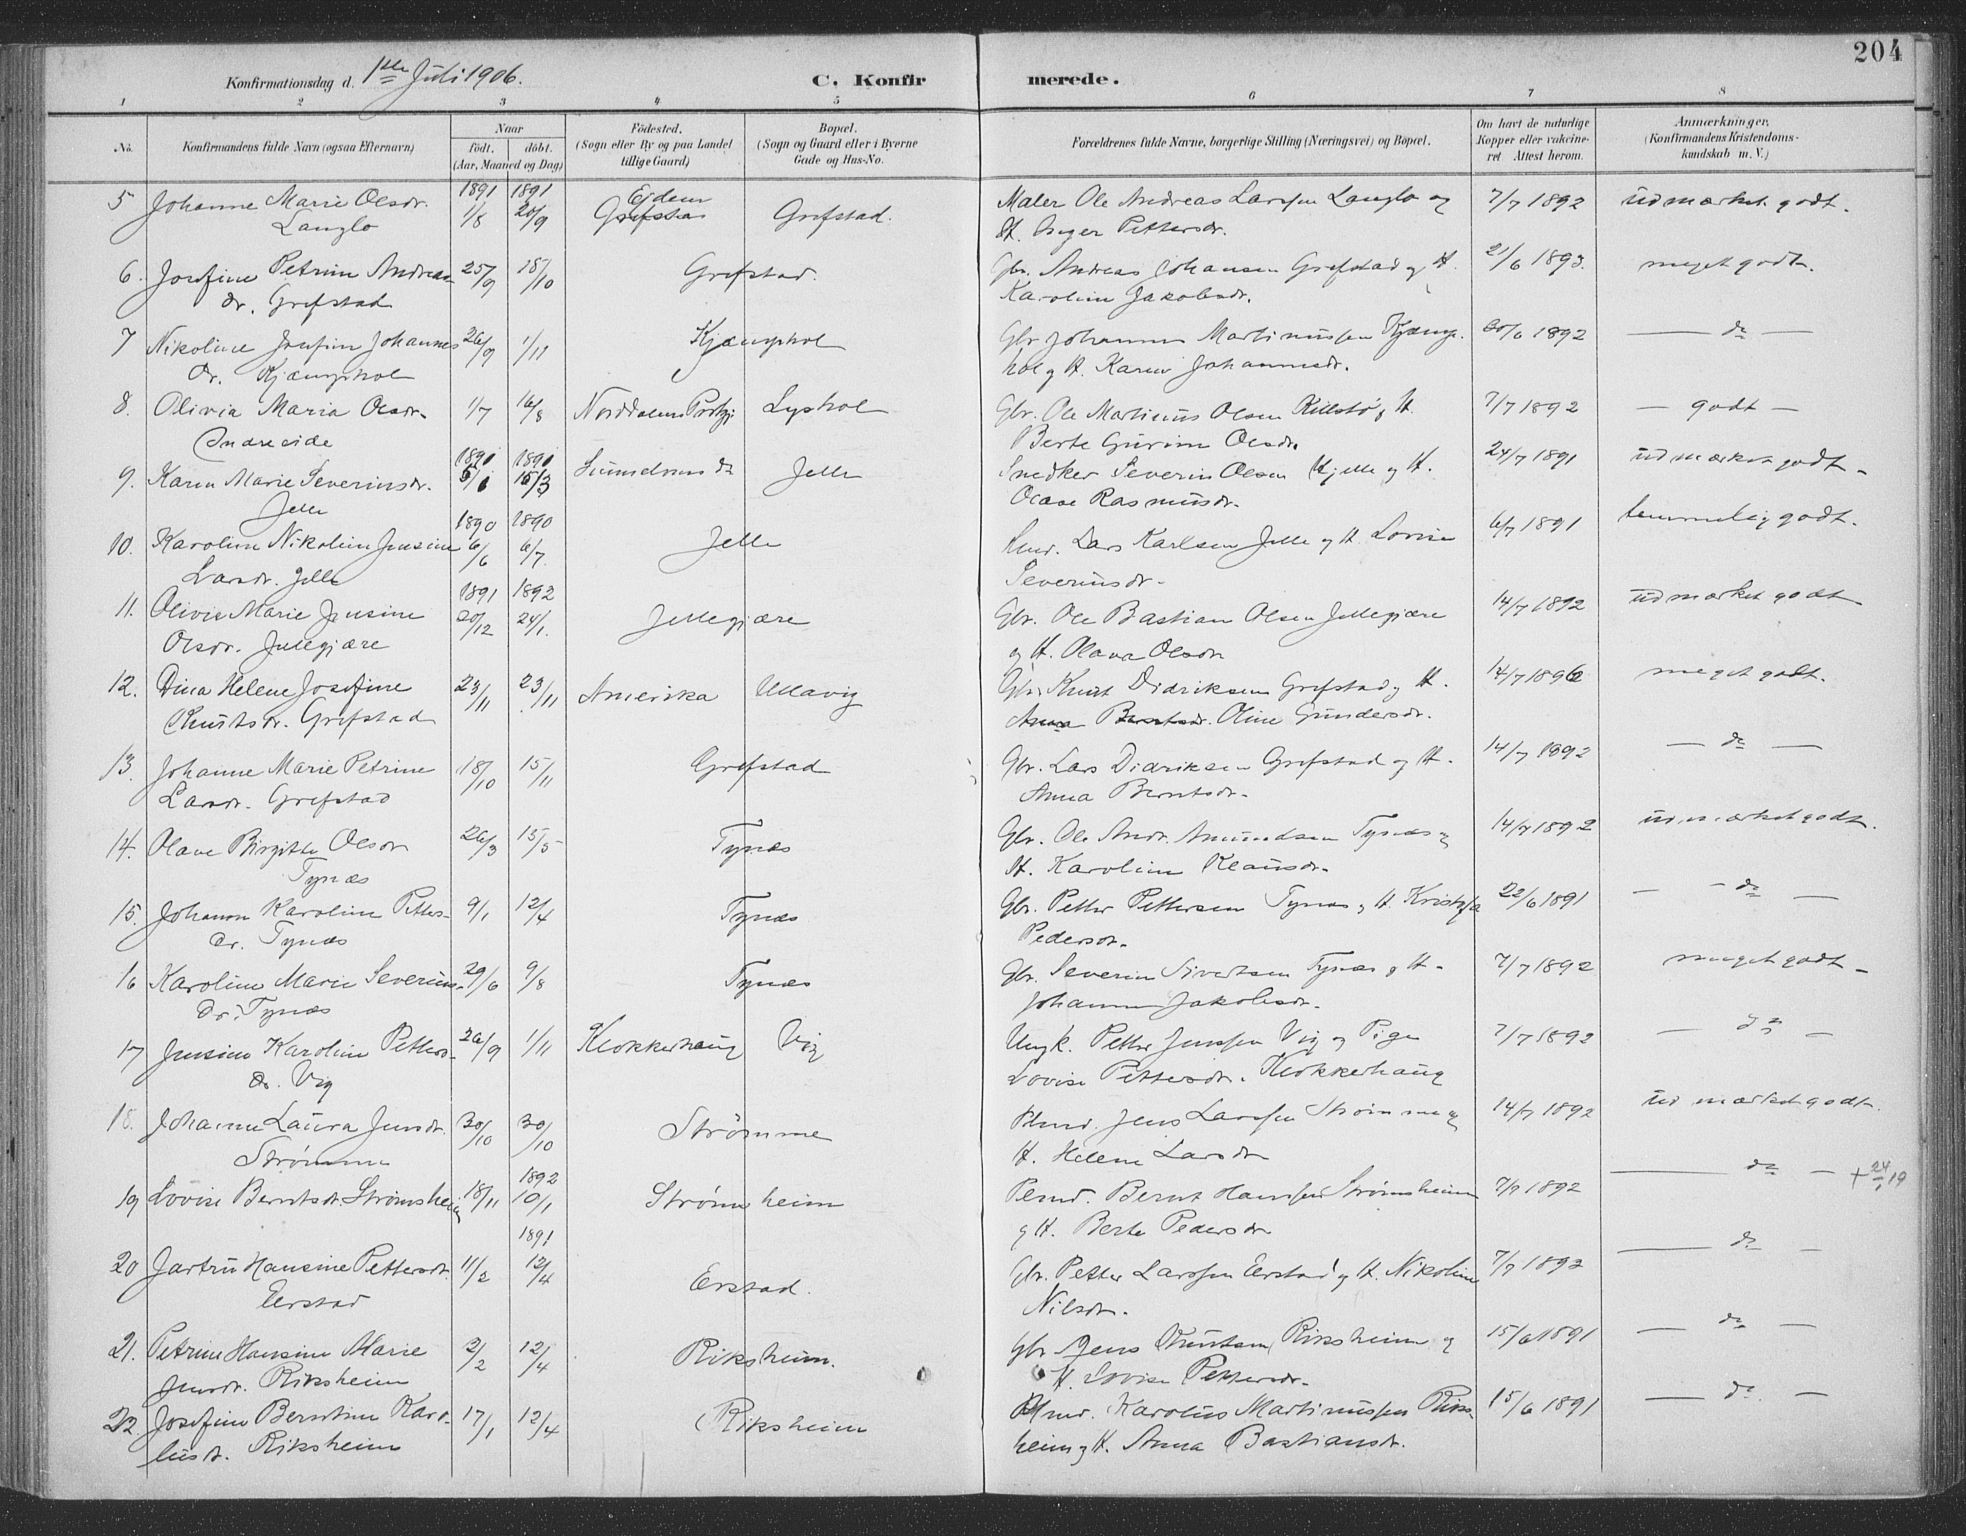 204
Konfirmationsdag d. 1ste Juli 1906.
C. Konfirmerede.
1 2 3 4 5 6 7 8
No.
Konfirmandens fulde Navn (ogsaa Efternavn)
Naar
födt. döbt.
(Aar, Maaned og Dag)
Födested.
(Sogn eller By og paa Landet
tillige Gaard)
Bopæl.
(Sogn og Gaard eller i Byerne
Gade og Hus-No.
Forældrenes fulde Navne, borgerlige Stilling (Næringsvei) og Bopæl.
Om havt de naturlige
Kopper eller vakcine-
ret Attest herom.
Anmærkninger.
(Konfirmandens Kristendoms-
kundskab m. V.)
1891 1891
5 Johanne Marie Olsdr. 1/8 20/9 Grefstad Grefstad. Maler Ole Andreas Larssen Langlo og 7/7 1892 udmærket godt.
Langlo H. Pettersdr.
6. Josefine Petrine Andreas 25/9 18/10 Grefstad. Gbr. Andreas Johansen Grefstad og H. 21/6 1893. meget godt.
dr. Grefstad Karoline Jakobsdr.
7 Nikoline Josefine Johannes 26/9 1/11 Kjæmphol Gbr Johannes Martinussen Kjæmp- 30/6 1892 — do —
dr. Kjæmphol hol og H. Karen Johannesdr.
8. Olivia Maria Olsdr. 1/7 16/8 Norddalens Lyshol Gbr. Ole Martinus Olsen og H. 7/7 1892 — godt —
Berte Gurine Olsdr.
1891 1891
9. Karen Marie Severinsdr. 15/3 do Jelle Snedker Severin Olsen Hjelle og H. 24/7 1891 udmærket godt.
Jelle Olave Rasmusdr.
1890 1890
10. Karoline Nikoline Jensine 6/6 6/7. Jelle Lars Karlsen Jelle og H. Lovise 6/7 1891 temmelig godt.
Larsdr. Jelle Severinsdr.
1891 1892
11. Olivie Marie Jensine 20/12 24/1. Jellegjære Gbr. Ole Bastian Olsen Jellegjære 14/7 1892 udmærket godt
Olsdr. Jellegjære og H. Olava Olsdr
12. Dina Helene Josefine 23/11 23/11 Amerika Ullavig Gbr. Knut Didriksen Grefstad og H. 14/7 1896 meget godt.
Knutsdr. Grefstad Anna Berntsdr. Oline Gundersdr.
13. Johanne Marie Petrine 18/10 15/11 Grefstad Gbr. Lars Didriksen Grefstad og H. 14/7 1892 — do —
Larsdr. Grefstad Anna Berntsdr.
14. Olave Birgitte Olsdr 26/3 15/5 Tynæs Gbr. Ole Andr. Amundsen Tynæs og 14/7 1892 udmærket godt.
Tynæs H. Karoline Klausdr.
15. Johanne Karoline Petters- 9/1 12/4 Tynæs Gbr. Petter Pettersen Tynæs og H. 22/6 1891 — do —
dr. Tynæs Pedersdr.
16 Karoline Marie Severins- 29/6 9/8 Tynæs Gbr. Severin Sivertsen Tynæs og H. 7/7 1892 meget godt
dr. Tynæs Johanne Jakobsdr.
17 Jensine Karoline Petters- 26/9 1/11 Klokkerhaug Vig Ungk. Petter Jenssen Vig og Pige 7/7 1892 — do —
dr. Vig Lovise Pettersdr. Klokkerhaug
18. Johanne Laura Jensdr. 30/10 30/10 Strømme Jens Larssen Strømme og 14/7 1892 udmærket godt.
Strømme H. Helene Larsdr
1892
19 Lovise Berntsdr. Strømsheim 18/11 10/1 Strømsheim Bernt Hanssen Strømsheim 7/7 1892 — do — + 24/1 19
og H. Berte Pedersdr
1891
20 Jartru Hansine Pettersdr. 11/2 12/4 Erstad. Gbr. Petter Larssen Erstad og H. Nikoline 7/7 1892 — do —
Erstad Nilsdr.
21. Petrine Hansine Marie 2/2 12/4 Riksheim. Gbr Jens Knutsen Riksheim og 15/6 1891 — do —
Jensdr. Riksheim H. Lovise Pettersdr.
22. Josefine Berntine Karo- 17/1 12/4 Riksheim Karolus Martinussen Riks- 15/6 1891 — do —
lusdr. Riksheim heim og H. Anna Bastiansdr.